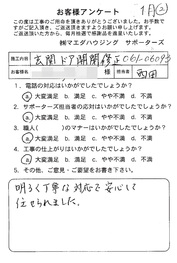 お客様アンケート
1月②
この度は工事のご用命を頂きありがとうございました。お手数で
すがご記入頂き、ご返送頂きます様お願い申し上げます。
ご返送頂いた方から、毎月抽選で感謝品を進呈させて頂きます。
㈱マエダハウジング サポーターズ
施工内容 玄関ドア開閉修正
お客様名 様 担当者 西田
1. 電話の対応はいかがでしたでしょうか?
a 大変満足 b. 満足 c. やや不満 d. 不満
2. サポーターズ担当者の応対はいかがでしたでしょうか?
a 大変満足 b. 満足 c. やや不満 d. 不満
3. 職人( )のマナーはいかがでしたでしょうか?
a 大変満足 b. 満足 c. やや不満 d. 不満
4. 工事の仕上がりはいかがでしたでしょうか?
a 大変満足 b. 満足 c. やや不満 d. 不満
5. その他、ご意見・ご要望をお書き下さい。
明るく丁寧な対応で安心して
任せられました。